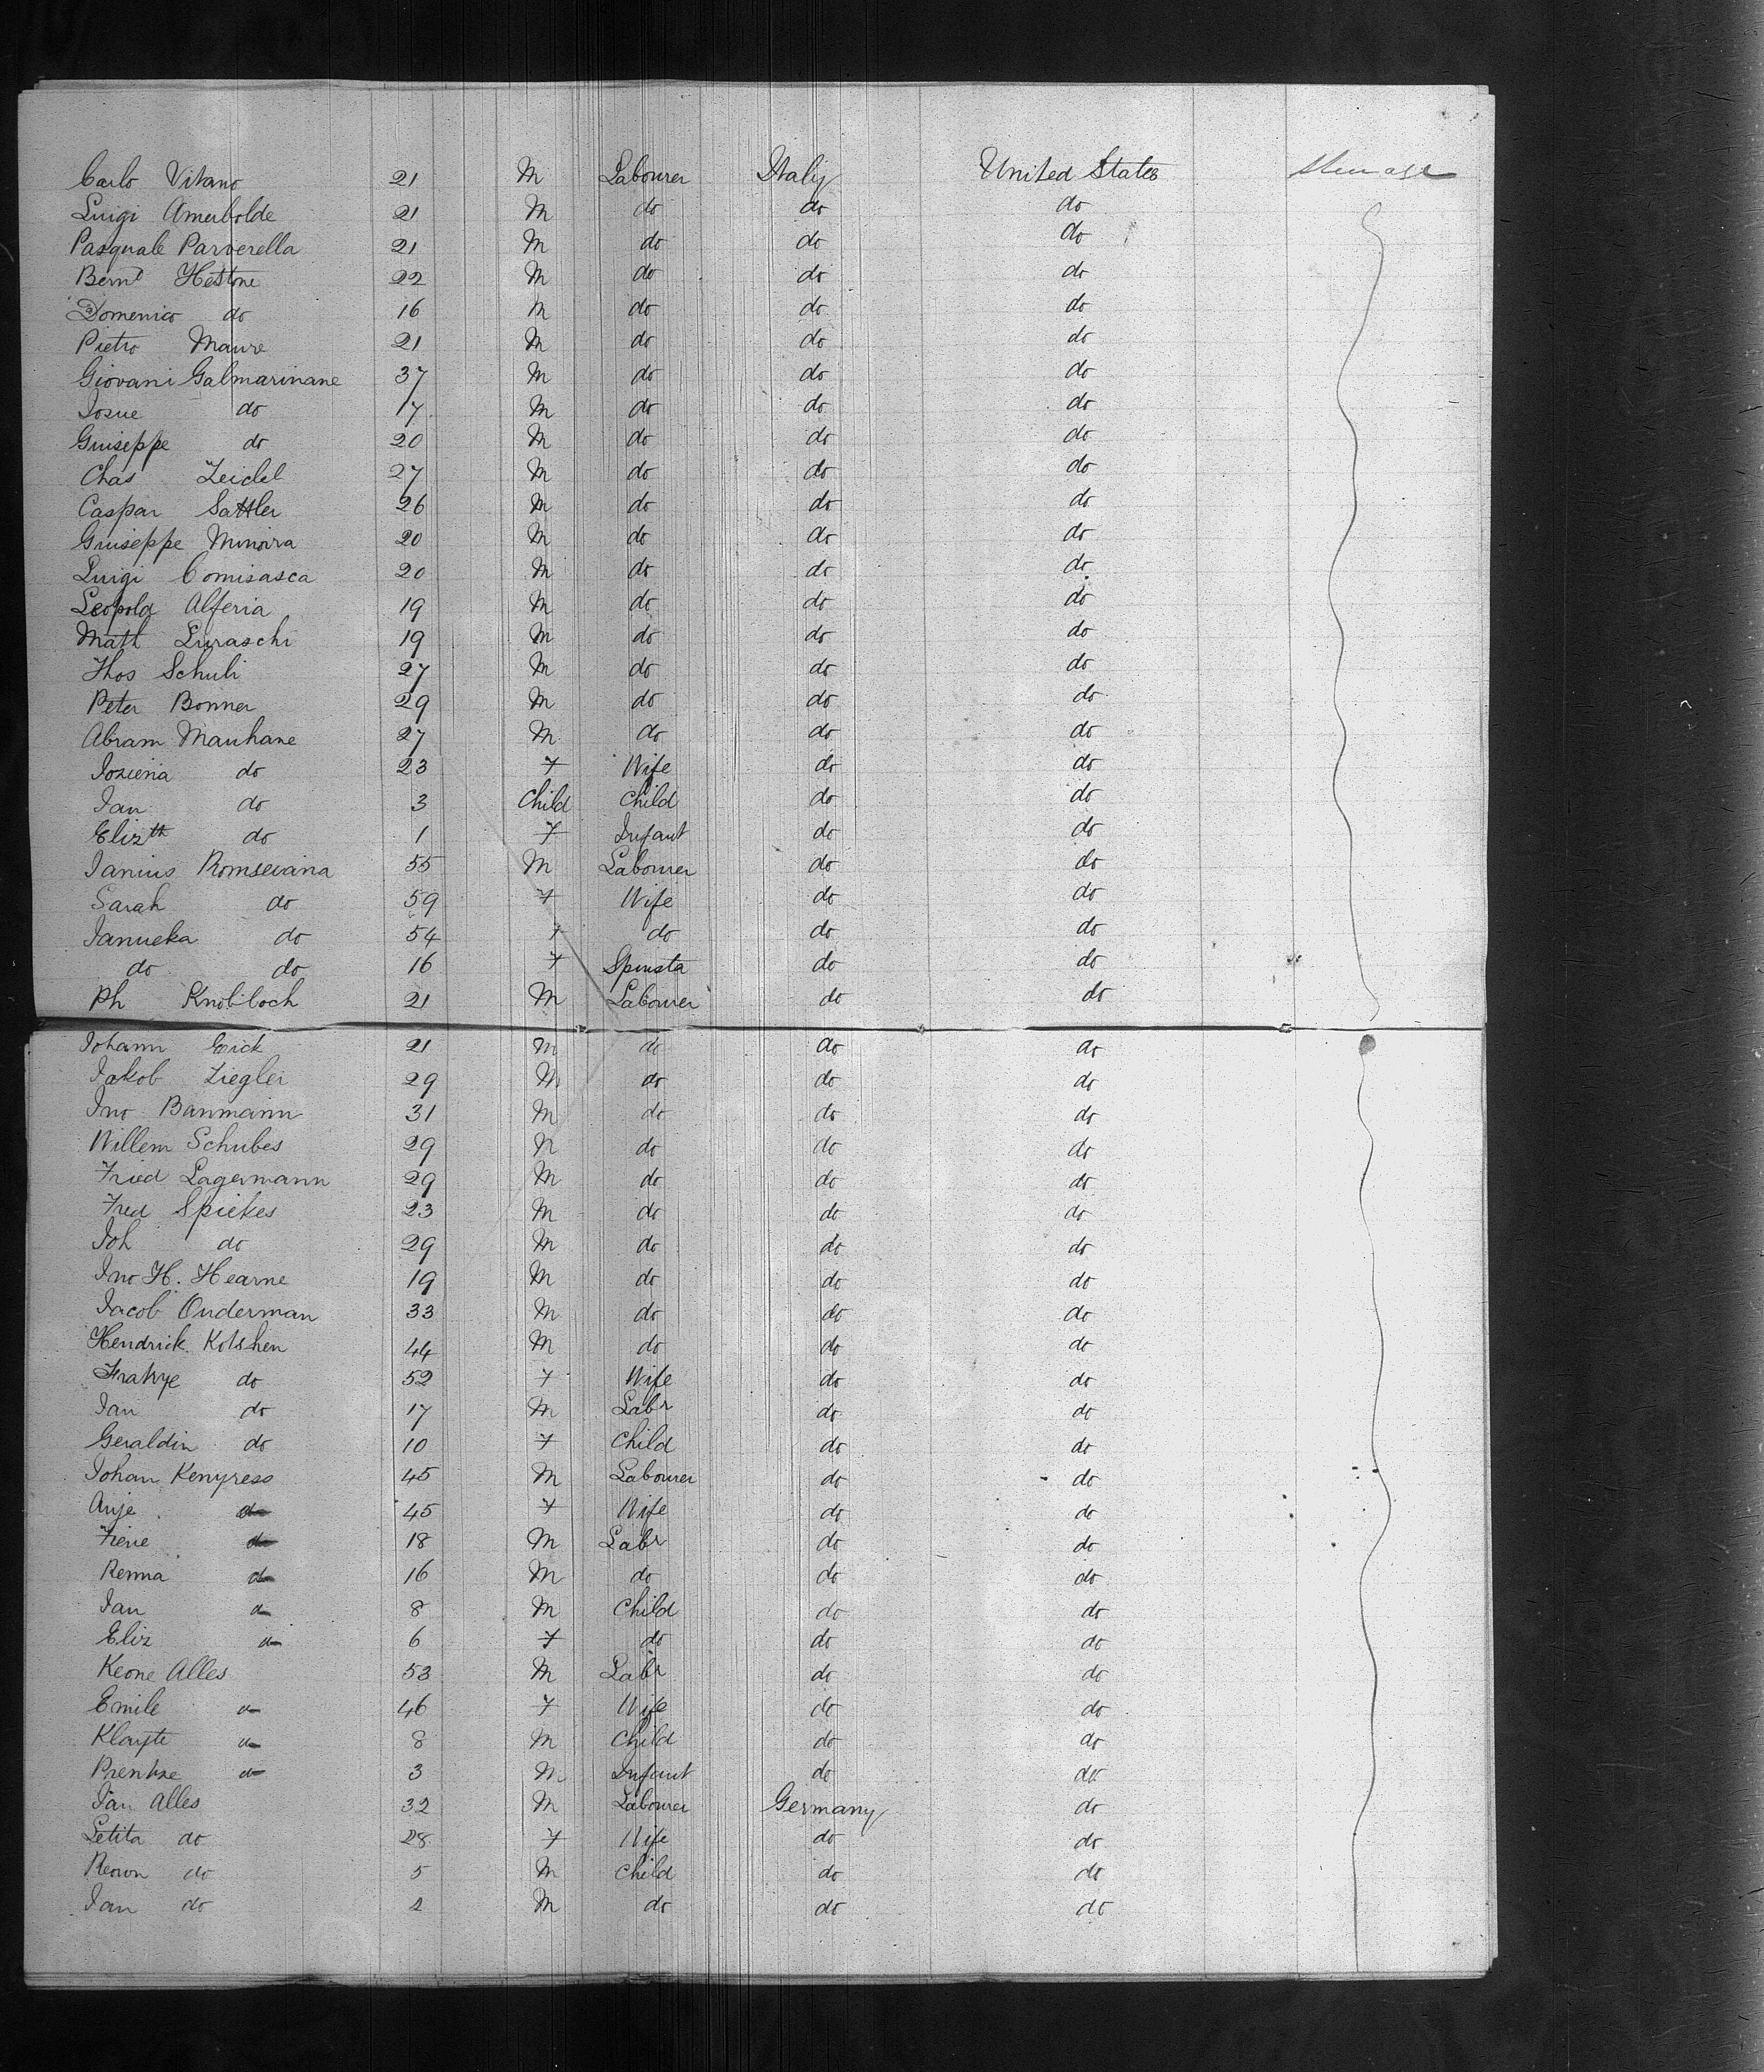 Carlo Vitano 21 M Labourer Italy United States Steerage
Luigi Amerbolde 21 M do do do
Pasquale Parverella 21 M do do do
Bernd Hestone 22 M do do do
Domenico do 16 M do do do
Pietro Maure 21 M do do do
Giovani Galmarinane 37 M do do do
Josue do 17 M do do do
Guiseppe do 20 M do do do
Chas Zeidel 27 M do do do
Caspar Sattler 26 M do do do
Guiseppe Minoira 20 M do do do
Luigi Comisasca 20 M do do do
Leopold Alferia 19 M do do do
Math Luraschi 19 M do do do
Thos Schuli 27 M do do do
Peter Bonner 29 M do do do
Abram Mauhane 27 M do do do
Josuena do 23 F Wife do do
Jan do 3 Child Child do do
Elizth do 1 F Infant do do
Janius Romsevaina 55 M Labourer do do
Sarah do 59 F Wife do do
Janueka do 54 F do do do
do do 16 F Spinsta do do
Ph Knobloch 21 M Labourer do do
Johann Eick 21 M do do do
Jakob Ziegler 29 M do do do
Jno Banmann 31 M do do do
Willem Schubes 29 M do do do
Fried Lagermann 29 M do do do
Fred Spiekes 23 M do do do
Joh do 29 M do do do
Jno H. Hearne 19 M do do do
Jacob Onderman 33 M do do do
Hendrick Kotshen 44 M do do do
do 52 F Wife do do
Jan do 17 M Labr do do
Geraldin do 10 F Child do do
Johan Kenyress 45 M Labourer do do
Anje do 45 F Wife do do
Fiene do 18 M Labr do do
Renna do 16 M do do do
Jan do 8 M Child do do
Eliz do 6 F do do do
Keone Alles 53 M Labr do do
Emile do 46 F Wife do do
Klayte do 8 M Child do do
Prentze do 3 M Infant do do
Jan Alles 32 M Labourer Germany do
Letita do 28 F Wife do do
Reown do 5 M Child do do
Jan do 2 M do do do